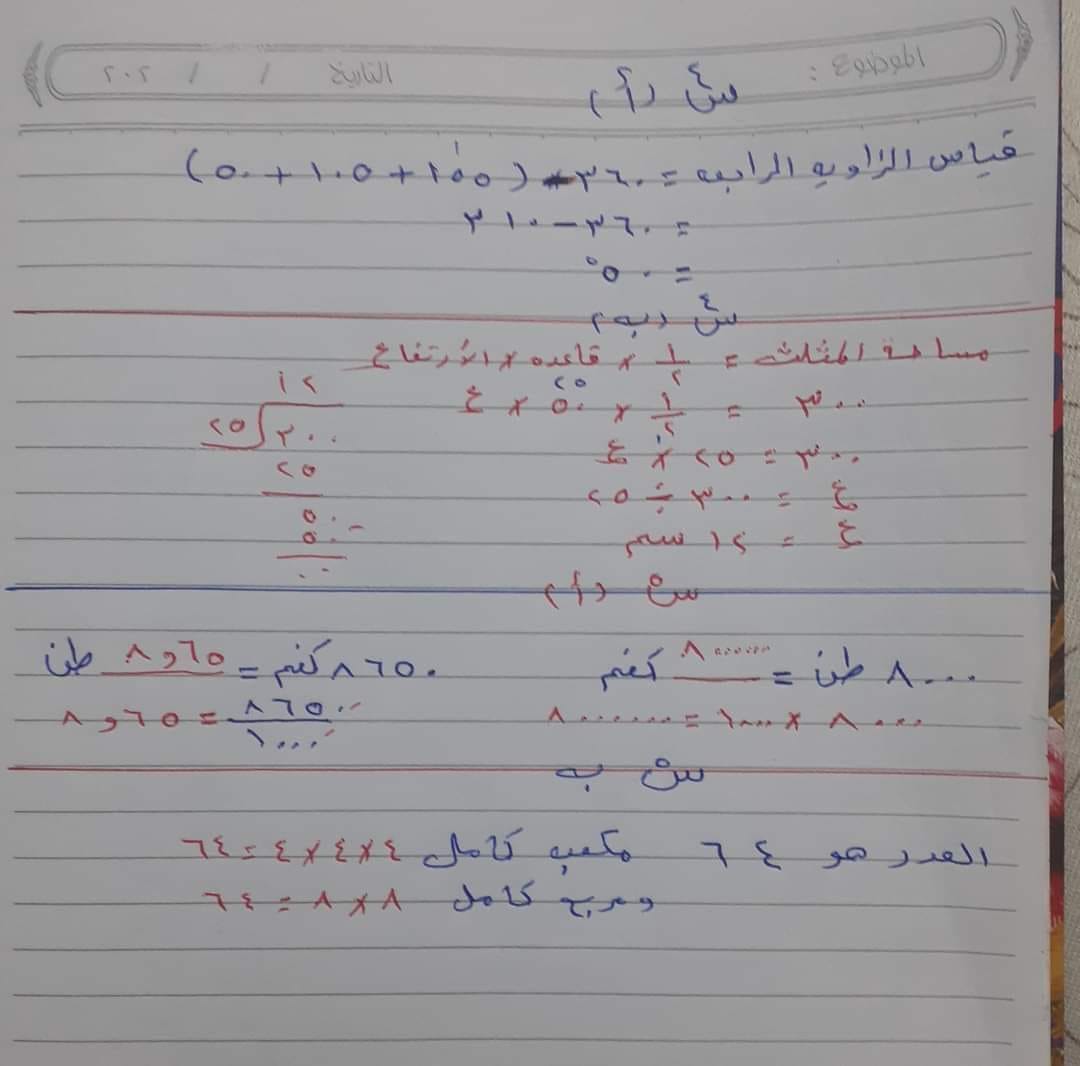 الموضوع : التاريخ / / ٢٠٢
س٤ (أ)
قياس الزاويه الرابعه = ٣٦٠ - (١٥٥ + ١٠٥ + ٥٠)
= ٣٦٠ - ٣١٠
= ٥٠°
س٤ (ب)
مساحة المثلث = ١/٢ × قاعده × الأرتفاع
٣٠٠ = ١/٢ × ٥٠ × ع
٢٥
٣٠٠ = ٢٥ × ع
ع = ٣٠٠ ÷ ٢٥
ع = ١٢ سم
١٢
٢٥ ٣٠٠
٢٥
٥٠
٥٠ -
٠٠
س٥ (أ)
٨٠٠٠ طن = ٨٠٠٠٠٠٠ كغم
٨٦٥٠ كغم = ٨,٦٥ طن
٨٠٠٠ × ١٠٠٠ = ٨٠٠٠٠٠٠
٨٦٥٠/١٠٠٠ = ٨,٦٥
س٥ ب
العدد هو ٦٤ مكعب كامل ٤×٤×٤=٦٤
ومربع كامل ٨×٨=٦٤